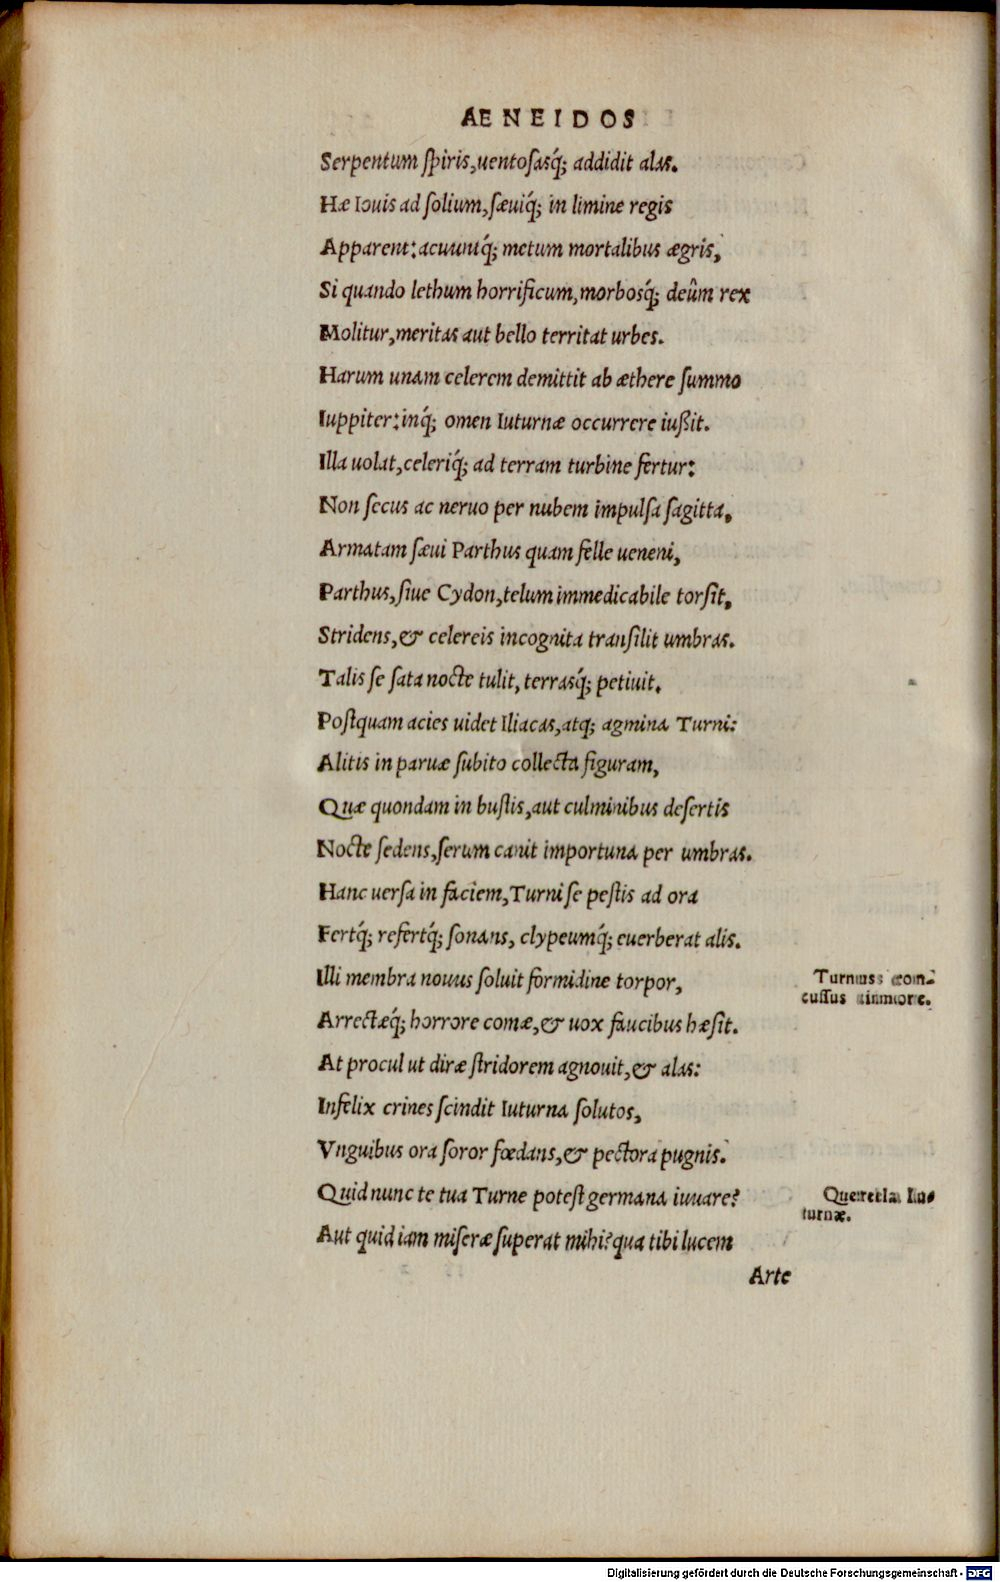 AENEIDOS
Serpentum spiris, uentosasq́; addidit alas.
Hæ Iouis ad solium, sæuiq́; in limine regis
Apparent: acuuntq́; metum mortalibus ægris,
Si quando lethum horrificum, morbosq́; deûm rex
Molitur, meritas aut bello territat urbes.
Harum unam celerem demittit ab æthere summo
Iuppiter: inq́; omen Iuturnæ occurrere iußit.
Illa uolat, celeriq́; ad terram turbine fertur:
Non secus ac neruo per nubem impulsa sagitta,
Armatam sæui Parthus quam felle ueneni,
Parthus, siue Cydon, telum immedicabile torsit,
Stridens, & celereis incognita transilit umbras.
Talis se sata nocte tulit, terrasq́; petiuit.
Postquam acies uidet Iliacas, atq; agmina Turni:
Alitis in paruæ subito collecta figuram,
Quæ quondam in bustis, aut culminibus desertis
Nocte sedens, serum canit importuna per umbras.
Hanc uersa in faciem, Turni se pestis ad ora
Fertq́; refertq́; sonans, clypeumq́; euerberat alis.
Illi membra nouus soluit formidine torpor,
Turnus con-
cussus timore.
Arrectæq́; horrore comæ, & uox faucibus hæsit.
At procul ut diræ stridorem agnouit, & alas:
Infelix crines scindit Iuturna solutos,
Vnguibus ora soror fœdans, & pectora pugnis.
Quid nunc te tua Turne potest germana iuuare?
Querela Iu-
turnæ.
Aut quid iam miseræ superat mihi? qua tibi lucem
Arte
Digitalisierung gefördert durch die Deutsche Forschungsgemeinschaft - DFG